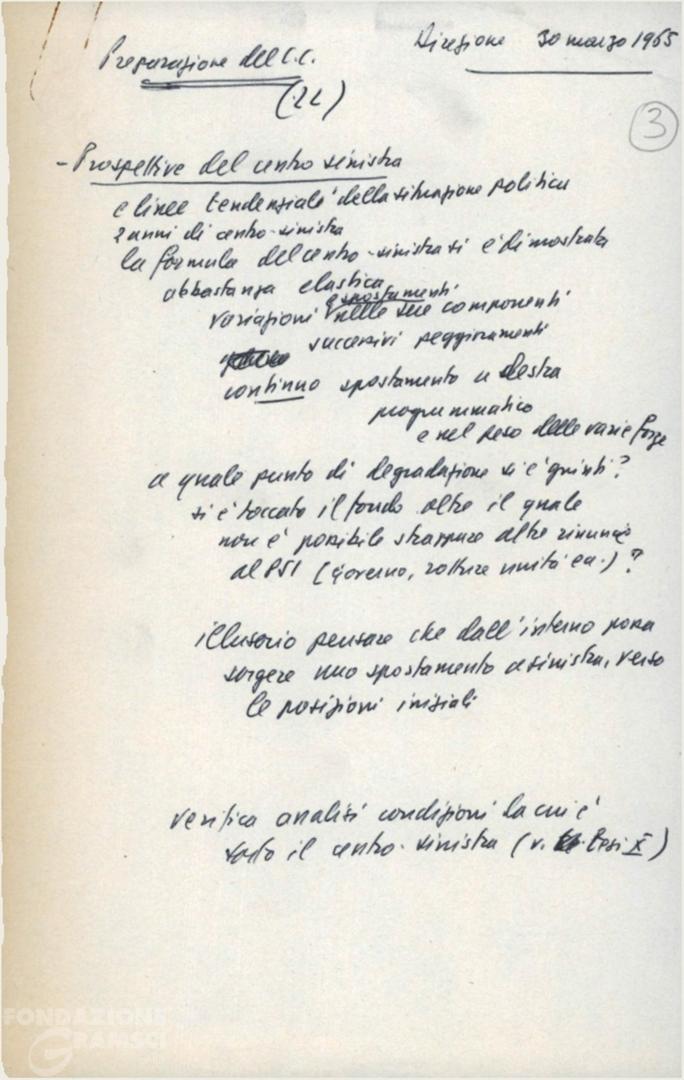 Direzione 30 marzo 1965
Preparazione del C.C.
(22)
3
- Prospettive del centro sinistra
e linee tendenziali della situazione politica
2 anni di centro-sinistra
la formula del centro-sinistra si è dimostrata
abbastanza elastica
e spostamenti
variazioni nelle sue componenti
successivi peggioramenti
continuo spostamento a destra
programmatico
e nel peso delle varie forze
a quale punto di degradazione si è giunti?
si è toccato il fondo oltre il quale
non è possibile strappare altre rinuncie
al PSI (Governo, rotture unità ecc.)?
illusorio pensare che dall'interno possa
sorgere uno spostamento a sinistra, verso
le posizioni iniziali
verifica analisi condizioni da cui è
sorto il centro-sinistra (v. Tesi X)
FONDAZIONE
GRAMSCI